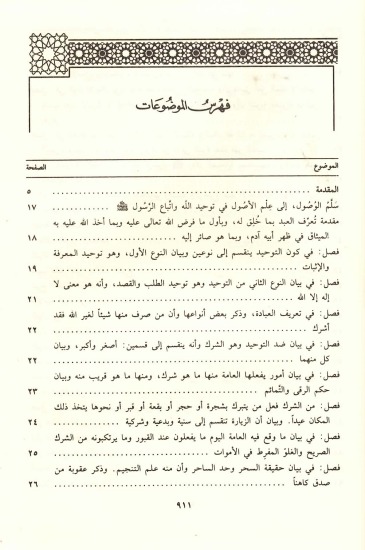 فهرس الموضوعات
الموضوع الصفحة
المقدمة ٥
سلّم الوصول، إلى عِلْم الأصُول في توحيد الله واتّباع الرّسُول ﷺ ١٧
مقدمة تُعرِّف العبد بما خُلِق له، وبأول ما فرض الله تعالى عليه وبما أخذ الله عليه به
الميثاق في ظهر أبيه آدم، وبما هو صائر إليه ١٨
فصل: في كون التوحيد ينقسم إلى نوعين وبيان النوع الأول، وهو توحيد المعرفة
والإثبات ١٩
فصل: في بيان النوع الثاني من التوحيد وهو توحيد الطلب والقصد، وأنه هو معنى لا
إله إلا الله ٢١
فصل: في تعريف العبادة، وذكر بعض أنواعها وأن من صرف منها شيئاً لغير الله فقد
أشرك ٢٢
فصل: في بيان ضد التوحيد وهو الشرك وأنه ينقسم إلى قسمين: أصغر وأكبر، وبيان
كل منهما ٢٢
فصل: في بيان أمور يفعلها العامة منها ما هو شرك، ومنها ما هو قريب منه وبيان
حكم الرقى والتّمائم ٢٣
فصل: من الشرك فعل من يتبرك بشجرة أو حجر أو بقعة أو قبر أو نحوها يتخذ ذلك
المكان عيداً. وبيان أن الزيارة تنقسم إلى سنية وبدعية وشركية ٢٤
فصل: في بيان ما وقع فيه العامة اليوم ما يفعلون عند القبور وما يرتكبونه من الشرك
الصريح والغلوّ المفرِط في الأموات ٢٥
فصل: في بيان حقيقة السحر وحد الساحر وأن منه علم التنجيم. وذكر عقوبة من
صدق كاهناً ٢٦
٩١١